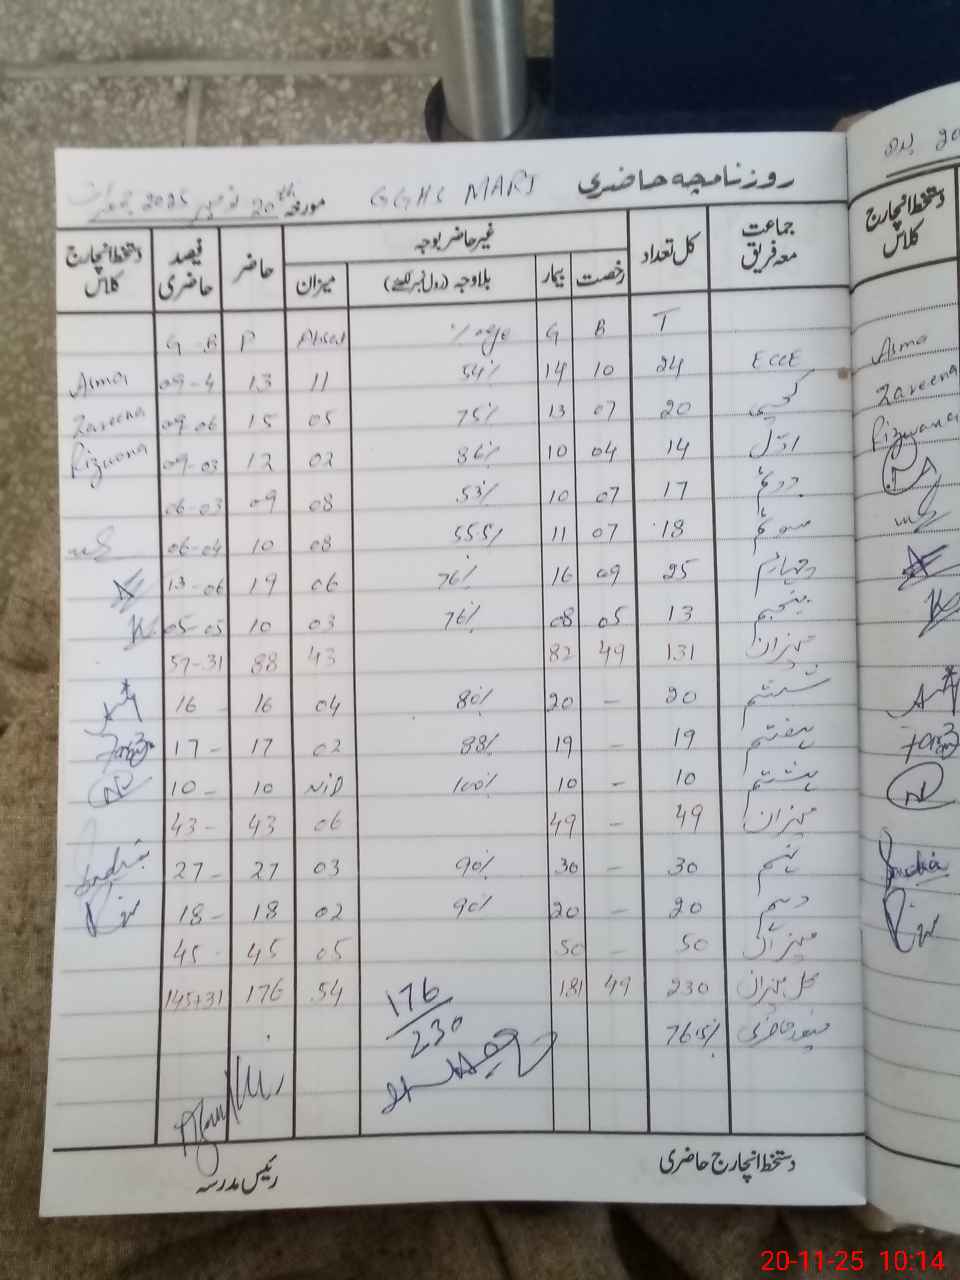 روزنامچہ حاضری GGHS MARI مورخہ 20th نومبر 2025
جماعت معہ فریق کل تعداد غیر حاضر بوجہ حاضر فیصد حاضری دستخط انچارج کلاس
رخصت بیمار بلاوجہ (رول نمبر لکھئے) میزان
T B G %age P G-B
ECCE 24 10 14 54% 11 13 09-4 Asma
کچی 20 07 13 75% 05 15 09-06 Zareena
اول 14 04 10 86% 02 12 09-03 Rizwana
دوئم 17 07 10 53% 08 09 06-03
سوئم 18 07 11 55.5% 08 10 06-04
چہارم 25 09 16 76% 06 19 13-06
پنجم 13 05 08 76% 03 10 05-05
میزان 131 49 82 43 88 57-31
ششم 20 - 20 80% 04 16 16 -
ہفتم 19 - 19 88% 02 17 17 -
ہشتم 10 - 10 100% Nil 10 10 -
میزان 49 - 49 06 43 43 -
نہم 30 - 30 90% 03 27 27 -
دہم 20 - 20 90% 02 18 18 -
میزان 50 - 50 05 45 45 -
کل میزان 230 49 181 54 176 145+31
فیصد حاضری 76.5%
176
230
دستخط انچارج حاضری رئیس مدرسہ
دستخط انچارج کلاس
Asma
Zareena
Rizwana
20-11-25 10:14